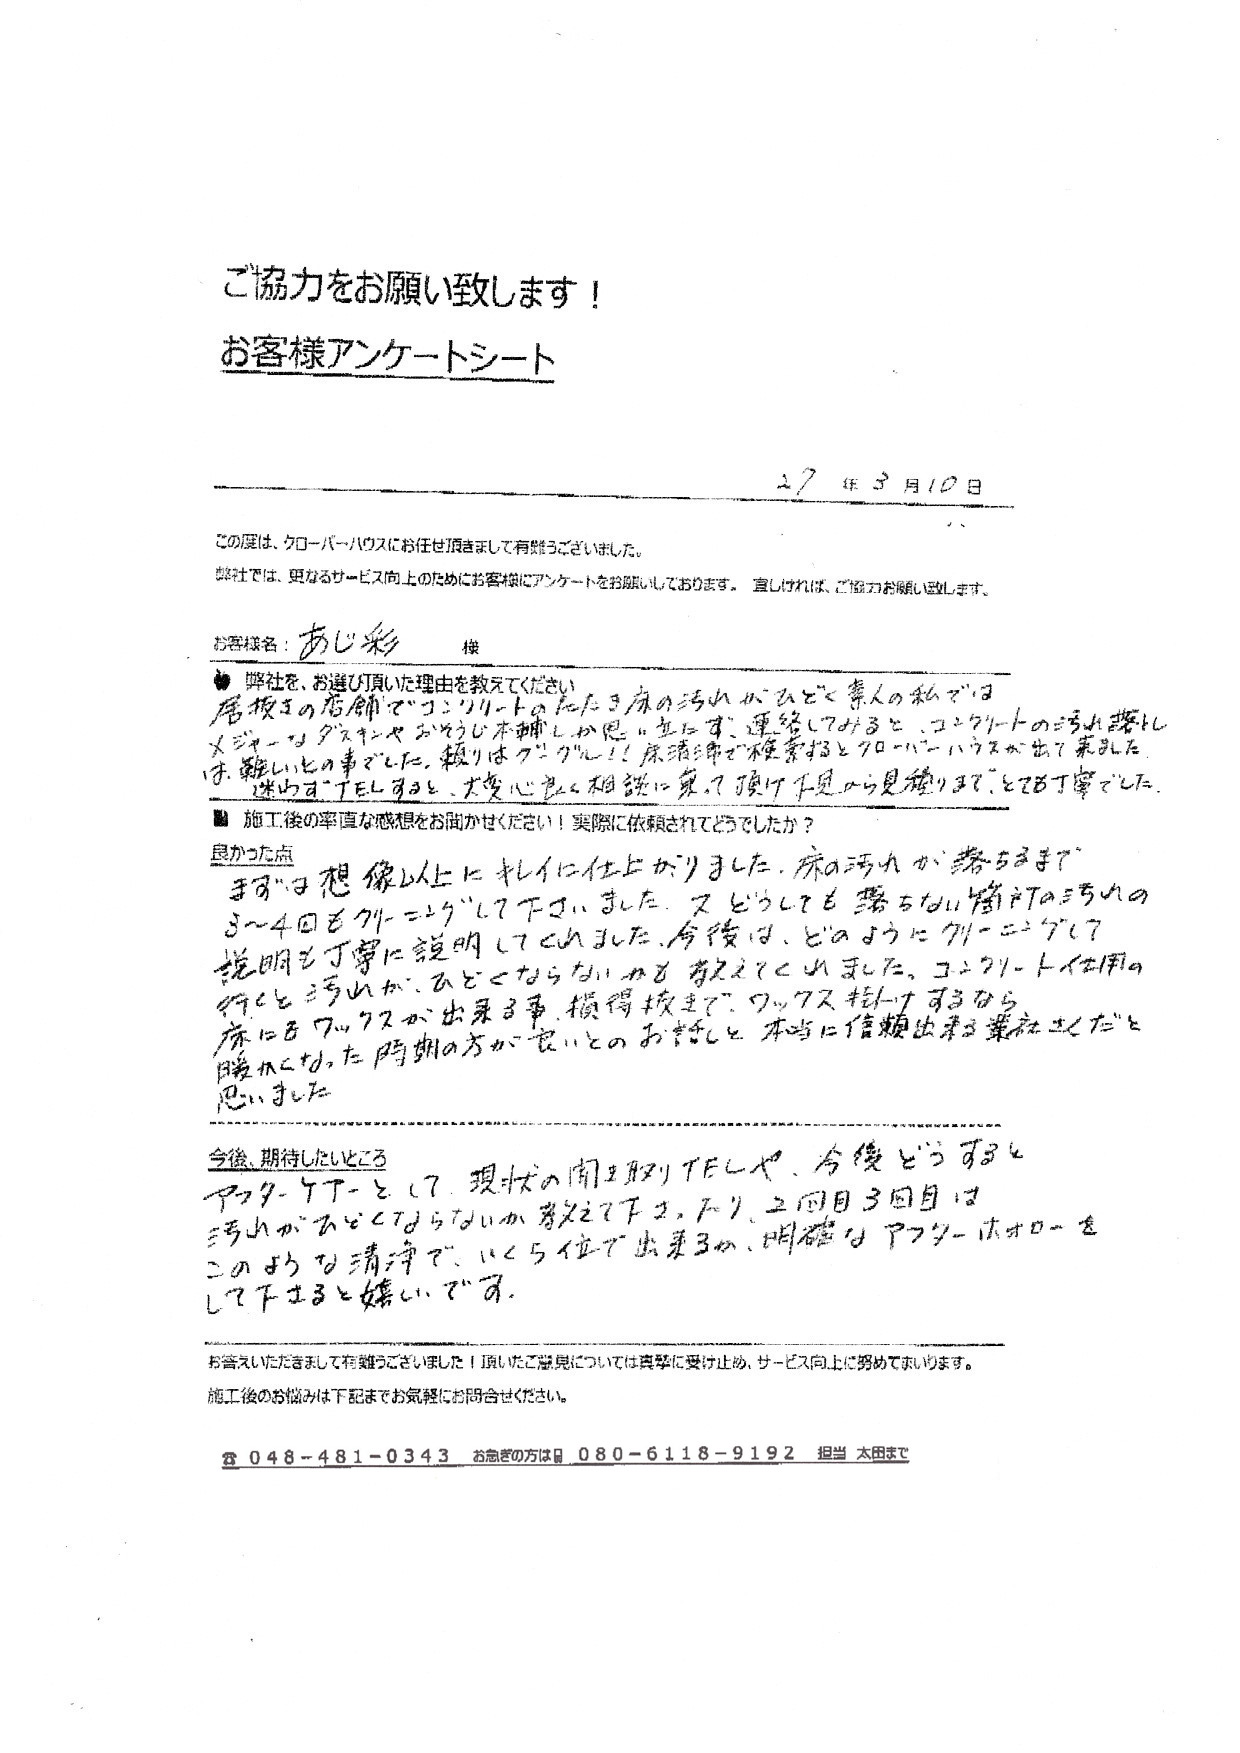 ご協力をお願い致します！
お客様アンケートシート
27 年 3 月 10 日
この度は、クローバーハウスにお任せ頂きまして有難うございました。
弊社では、更なるサービス向上のためにお客様にアンケートをお願いしております。 宜しければ、ご協力お願い致します。
お客様名： あじ彩 様
弊社を、お選び頂いた理由を教えてください
居抜きの店舗でコンクリートのたたき床の汚れがひどく素人の私では
メジャーなダスキンやおそうじ本舗しか思い立たず、連絡してみると、コンクリートの汚れ落トし
は、難しいとの事でした。頼りはグーグル!! 床清浄で検索するとクローバーハウスが出て来ました
迷わずTELすると、大変心良く相談に乗って頂け下見から見積りまで、とても丁寧でした。
施工後の率直な感想をお聞かせください！実際に依頼されてどうでしたか？
良かった点
まずは想像以上にキレイに仕上がりました。床の汚れが落ちるまで
3〜4回もクリーニングして下さいました。又どうしても落ちない箇所の汚れの
説明も丁寧に説明してくれました。今後は、どのようにクリーニングして
行くと汚れが、ひどくならないかも教えてくれました。コンクリート仕用の
床にもワックスが出来る事、損得抜きで、ワックス掛けするなら
暖かくなった時期の方が良いとのお話しと本当に信頼出来る業社さんだと
思いました
今後、期待したいところ
アフターケアーとして、現状の聞き取りTELや、今後どうすると
汚れがひどくならないか教えて下さったり、2回目3回目は
このような清浄で、いくら位で出来るか、明確なアフターホォローを
して下さると嬉しいです。
お答えいただきまして有難うございました！頂いたご意見については真摯に受け止め、サービス向上に努めてまいります。
施工後のお悩みは下記までお気軽にお問合せください。
☎ 048-481-0343 お急ぎの方は 080-6118-9192 担当 太田まで